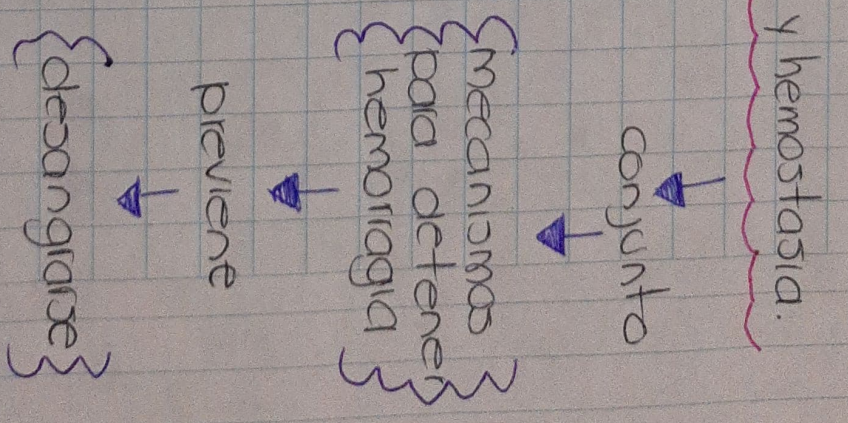 y hemostasia.
conjunto
mecanismos
para detener
hemorragia
previene
desangrarse